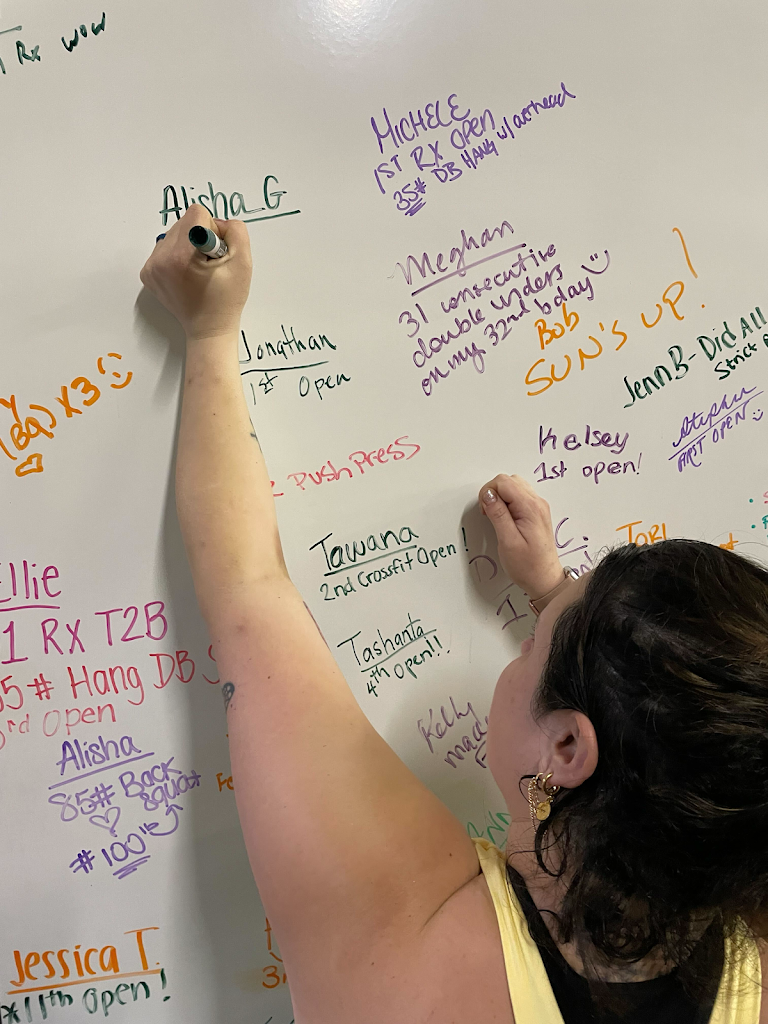 Rx wow
MICHELE
1ST RX OPEN
35# DB HANG w/ overhead
Alisha G
Meghan
31 consecutive
double unders
on my 32nd bday
Bob
SUN'S UP!
Jonathan
1st Open
JennB-Did All
Strict
(BQ) X3
Kelsey
1st open!
Stephen
FIRST OPEN
Push Press
Tawana
2nd Crossfit Open!
C.
TORI
Ellie
1 RX T2B
5# Hang DB S
3rd Open
Tashanta
4th Open!!
Kelly
made
Alisha
85# Back
Squat
#100
Jessica T.
*11th Open!